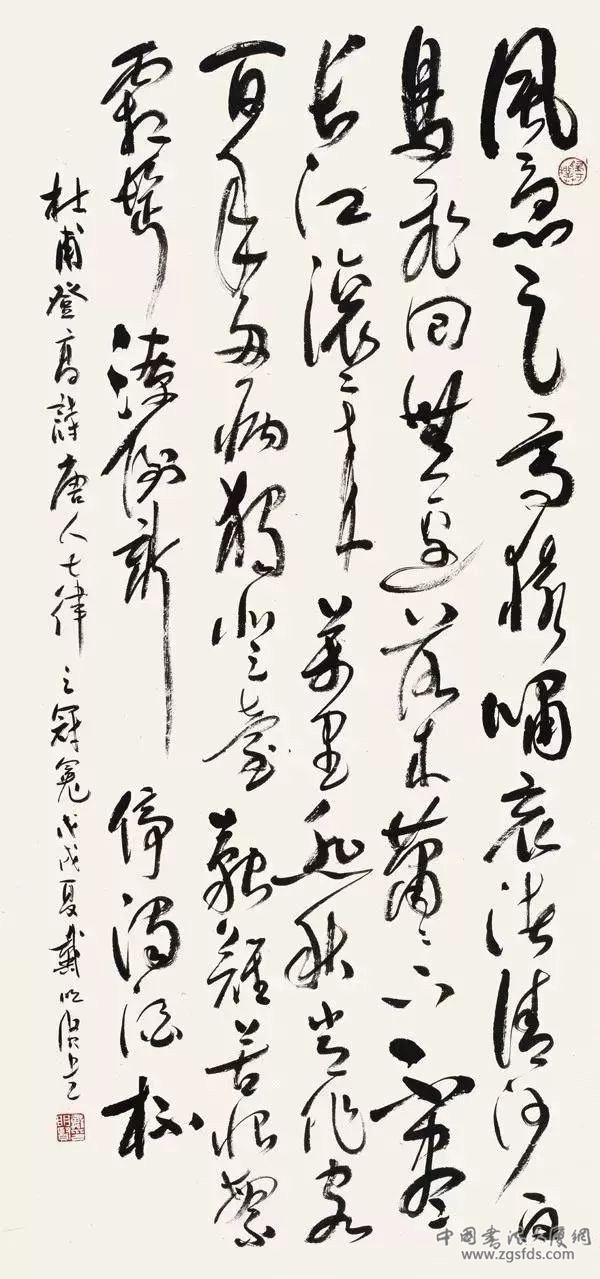 風急天高猿嘯哀渚清沙白
鳥飛回無邊落木蕭〻下不盡
長江滾〻来萬里悲秋常作客
百年多病獨登臺艱難苦恨繁
霜鬢潦倒新停濁酒杯
杜甫登高詩唐人七律之冠冕戊戌夏戴明賢
中國書法大廈網
www.zgsfds.com